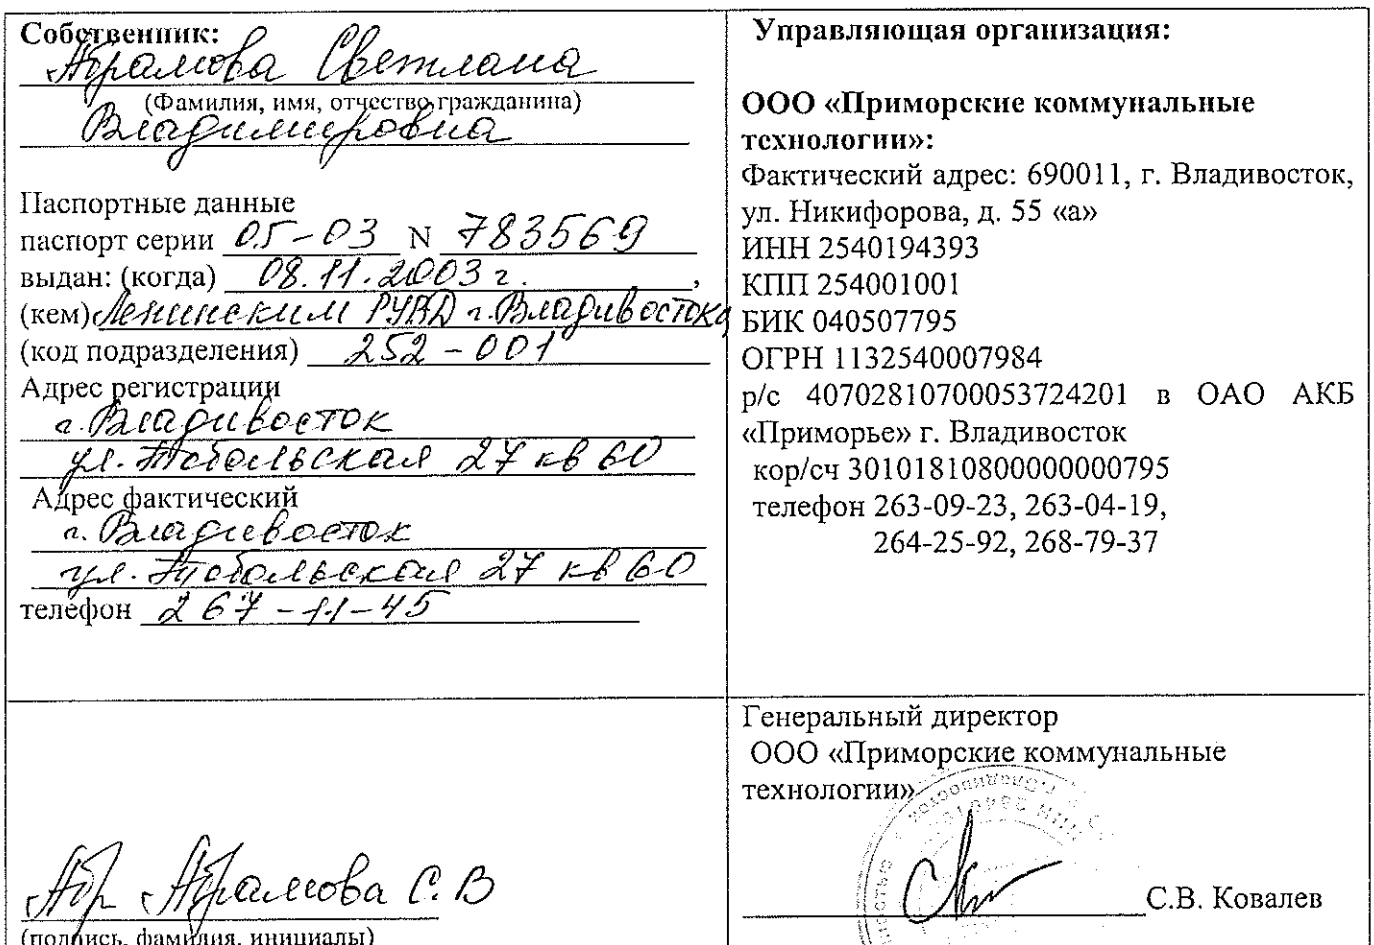 Собственник:
Абрамова Светлана
(Фамилия, имя, отчество гражданина)
Владимировна
Паспортные данные
паспорт серии 05-03 N 783569
выдан: (когда) 08.11.2003 г.,
(кем) Ленинским РУВД г. Владивостока
(код подразделения) 252-001
Адрес регистрации
г. Владивосток
ул. Тобольская 27 кв 60
Адрес фактический
г. Владивосток
ул. Тобольская 27 кв 60
телефон 267-11-45
Управляющая организация:
ООО «Приморские коммунальные
технологии»:
Фактический адрес: 690011, г. Владивосток,
ул. Никифорова, д. 55 «а»
ИНН 2540194393
КПП 254001001
БИК 040507795
ОГРН 1132540007984
р/с 40702810700053724201 в ОАО АКБ
«Приморье» г. Владивосток
кор/сч 30101810800000000795
телефон 263-09-23, 263-04-19,
264-25-92, 268-79-37
Абр Абрамова С.В
(подпись, фамилия, инициалы)
Генеральный директор
ООО «Приморские коммунальные
технологии»
С.В. Ковалев